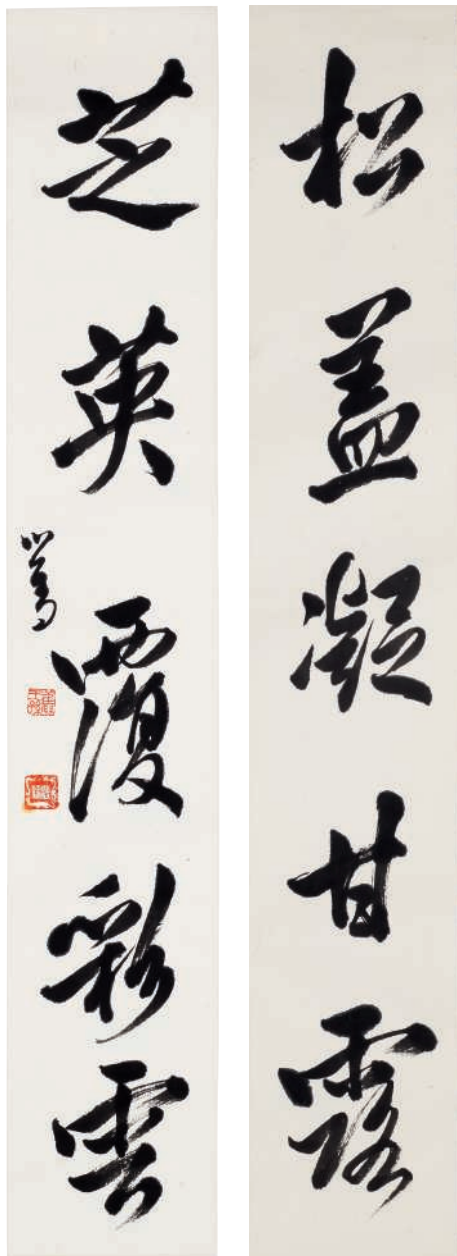 松蓋凝甘露
芝英覆彩雲
心畬